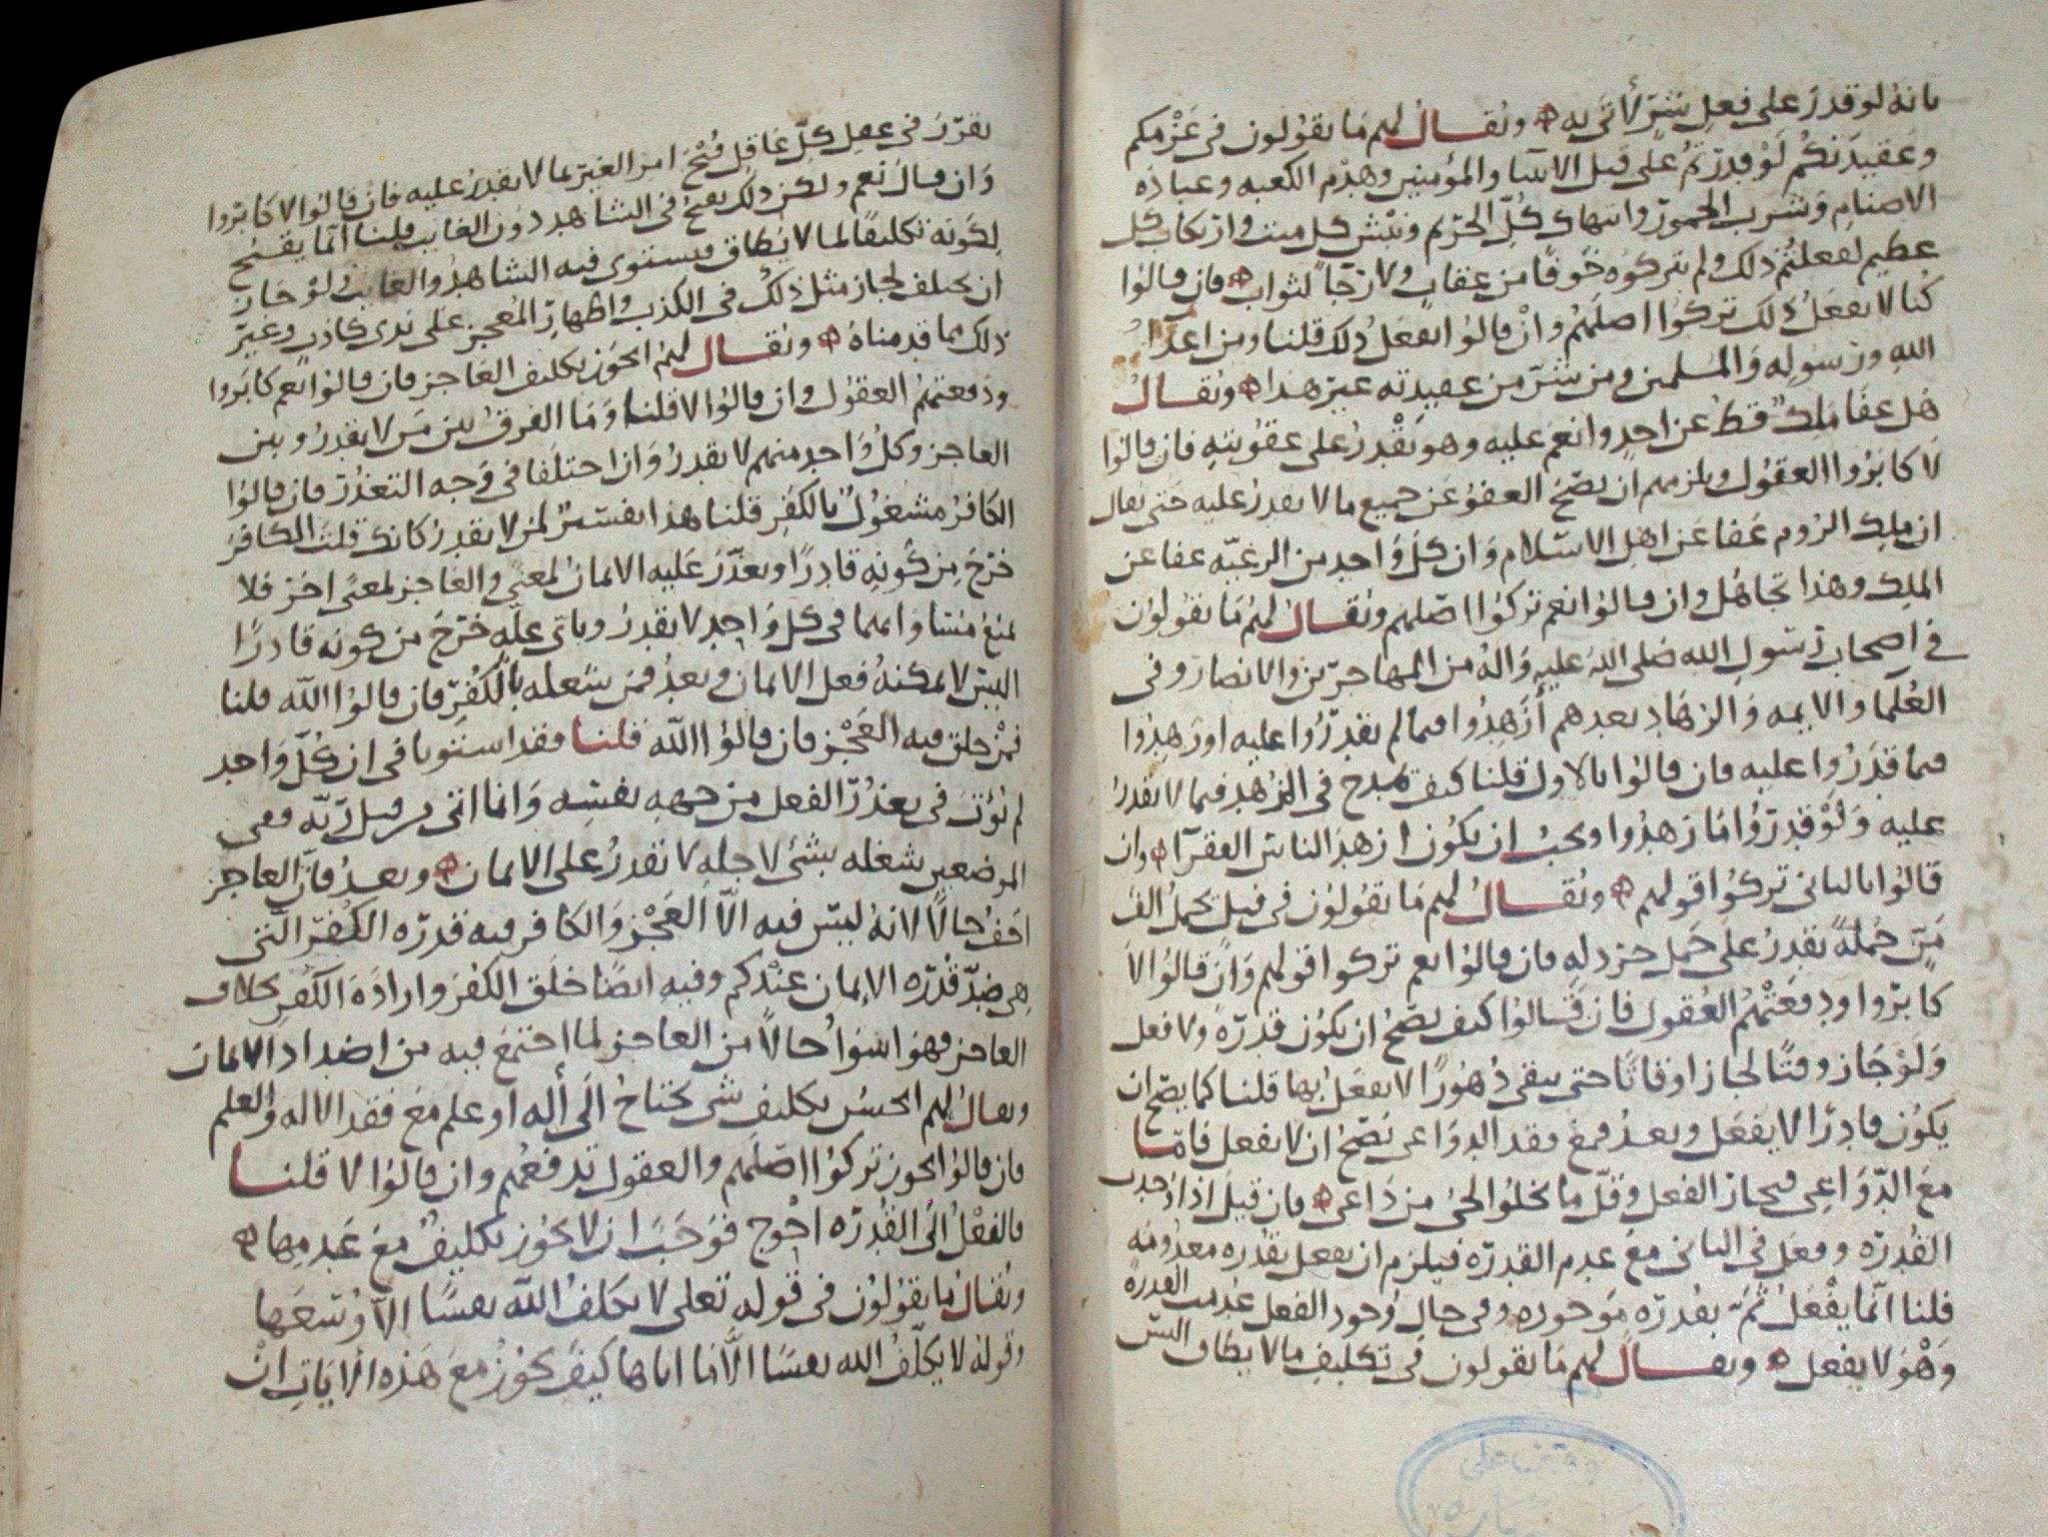 بانه لو قدر على فعل شرٍّ لأتى به ۞ ويقال لهم ما يقولون في عزمكم
وعقيدتكم لو قدرتم على قتل الانبيا والمؤمنين وهدم الكعبه وعباده
الاصنام وشرب الخمور وانتهاك كل الحريم ونبش كل ميت وارتكاب كل
عظيم لفعلتم ذلك ولم تتركوه خوفًا من عقاب ولا رجاً لثواب ۞ فان قالوا
كنا لا نفعل ذلك تركوا اصلهم وان قالوا نفعل ذلك قلنا ومن اعدا
الله ورسوله والمسلمين ومن شر من عقيدته غير هذا ۞ ويقال
هل عفا ملك قط عن احد وانعم عليه وهو يقدر على عقوبته فان قالوا
لا كابروا العقول ويلزمهم ان يصح العفو عن جميع ما لا يقدر عليه حتى يقال
ان ملك الروم عفا عن اهل الاسلام وان كل واحد من الرعيه عفا عن
الملك وهذا تجاهل وان قالوا نعم تركوا اصلهم ويقال لهم ما يقولون
في اصحاب رسول الله صلى الله عليه واله من المهاجرين والانصار وفي
العلما والايمه والزهاد بعدهم أزهدوا فيما لم يقدروا عليه او زهدوا
فيما قدروا عليه فان قالوا بالاول قلنا كيف تمدح في الزهد فيما لا يقدر
عليه ولو قدروا ما زهدوا ويجب ان يكون ازهد الناس الفقرآ ۞ وان
قالوا بالثاني تركوا قولهم ۞ ويقال لهم ما يقولون في فيل يحمل الف
منٍّ حمله يقدر على حمل خردله فان قالوا نعم تركوا قولهم وان قالوا لا
كابروا ودفعتهم العقول فان قالوا كيف يصح ان يكون قدرة ولا فعل
ولو جاز وقتًا لجاز اوقاتًا حتى يبقى دهورًا لا يفعل بها قلنا كما يصح ان
يكون قادرًا لا يفعل وبعد فمع فقد الدواعي يصح ان لا يفعل فاما
مع الدواعي فيجاز الفعل وقل ما يخلوا الحي من داعي ۞ فان قيل اذا اوجدت
القدره وفعل في الثاني مع عدم القدره فيلزم ان يفعل بقدره معدومه
قلنا انما يفعل ثمّ بقدره موجوده وفي حال وجود الفعل عدمت القدرة
وهو لا يفعل ۞ ويقال لهم ما يقولون في تكليف ما لا يطاق اليس
يقرر في عقل كل عاقل قبح امر الغير بما لا يقدر عليه فان قالوا لا كابروا
وان قال نعم ولكن ذلك يقبح في الشاهد دون الغايب قلنا انما يقبح
لكونه تكليفًا لما لا يطاق فيستوى فيه الشاهد والغايب ولو جاز
ان يختلف لجاز مثل ذلك في الكذب واظهار المعجز على يدى كاذب وغير
ذلك مما قدمناه ۞ ويقال لهم ايجوز تكليف العاجز فان قالوا نعم كابروا
ودفعتهم العقول وان قالوا لا قلنا وما الفرق بين من لا يقدر وبين
العاجز وكل واحد منهم لا يقدر وان اختلفا في وجه التعذر فان قالوا
الكافر مشغول بالكفر قلنا هذا تفسير لمن لا يقدر كانك قلت الكافر
خرج من كونه قادرًا وتعذر عليه الايمان لمعنى والعاجز لمعنى اخر فلا
يمنع متساوانهما في كل واحد لا يقدر وباي عله خرج من كونه قادرًا
اليس لا يمكنه فعل الايمان وبعد فمن شغله بالكفر فان قالوا الله قلنا
فمن خلق فيه العجز فان قالوا الله قلنا فقد استويا في ان كل واحد
لم يؤت في تعذر الفعل من جهه نفسه وانما اتى من قبل ربه ففي
الموضعين شغله بشئ لاجله لا يقدر على الايمان ۞ وبعد فان العاجز
اخف حالًا لانه ليس فيه الا العجز والكافر فيه قدره الكفر التي
هي ضد قدره الايمان عندكم وفيه ايضًا خلق الكفر وارادة الكفر بخلاف
العاجز فهو اسوأ حالًا من العاجز لما اجتمع فيه من اضداد الايمان
ويقال لهم ايحسن تكليف شي يحتاج الى أله او علم مع فقد الاله والعلم
فان قالوا يجوز تركوا اصلهم والعقول تدفعهم وان قالوا لا قلنا
فالفعل الى القدره احوج فوجب ان لا يجوز تكليف مع عدمها ۞
ويقال ما يقولون في قوله تعلى لا يكلف الله نفسًا الا وسعها
وقوله لا يكلف الله نفسًا الا ما اتاها كيف يجوز مع هذه الايات ان